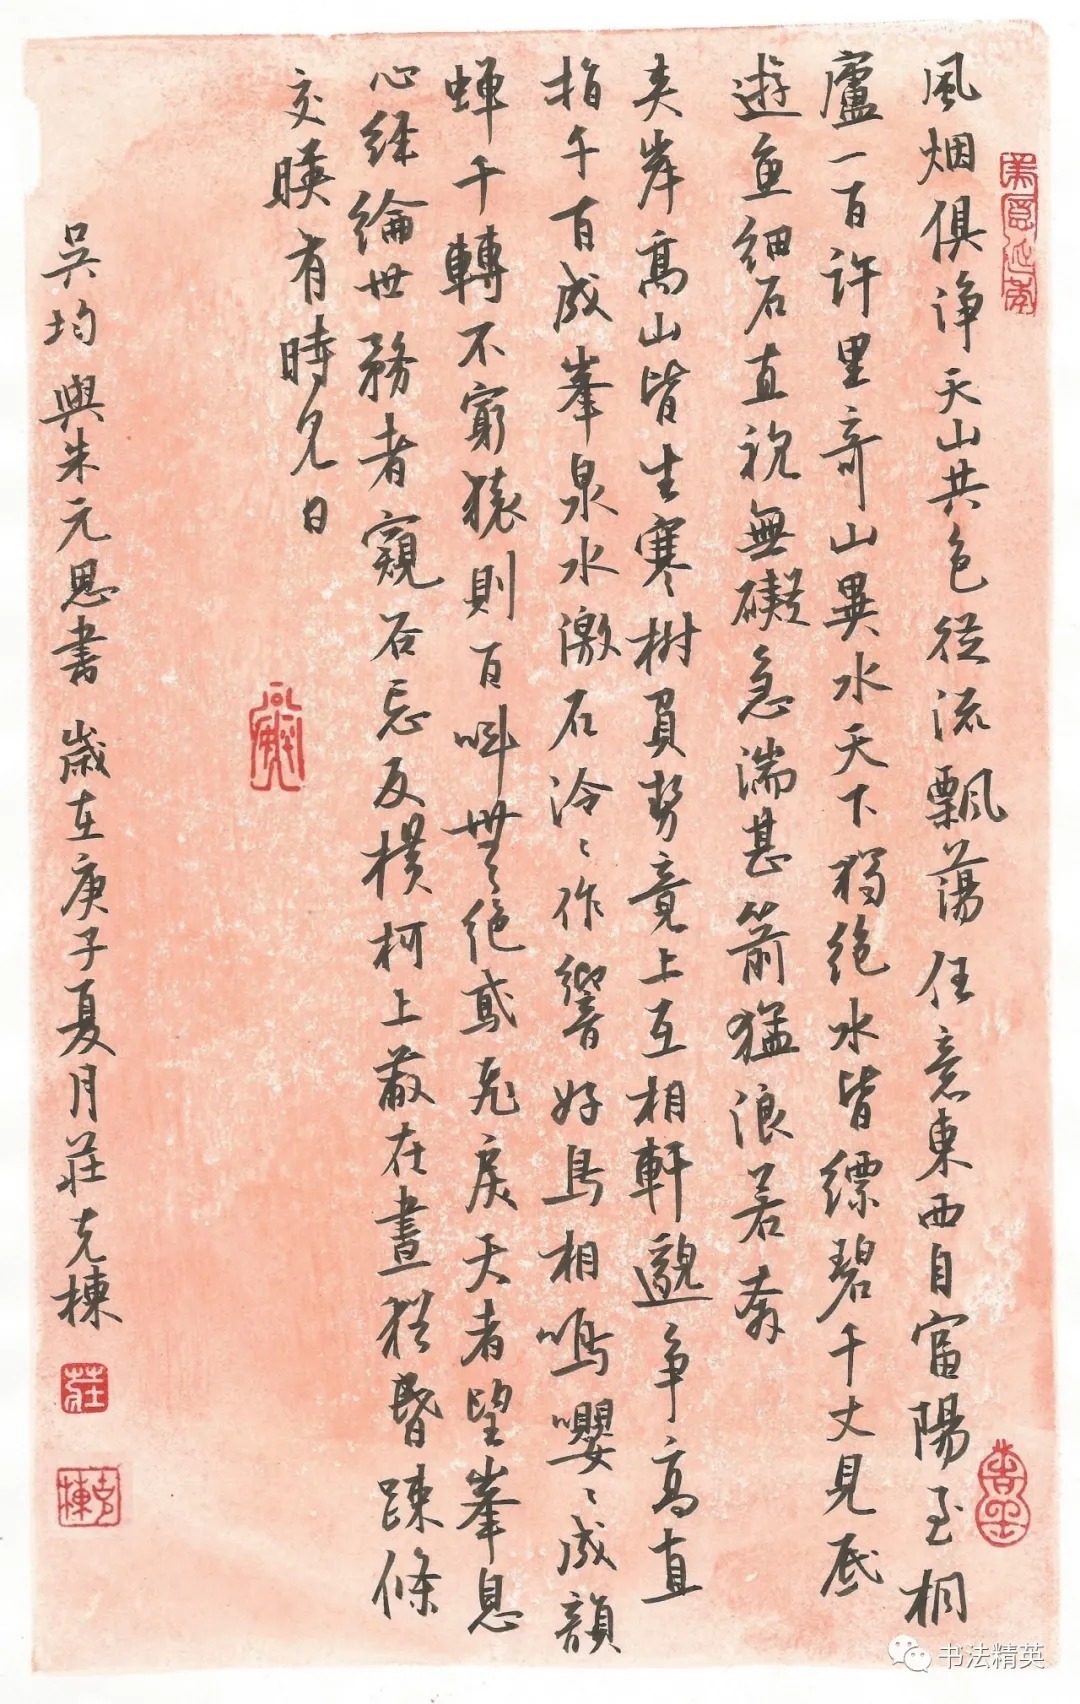 風烟俱淨天山共色從流飄蕩任意東西自富陽至桐
廬一百許里奇山異水天下獨絕水皆縹碧千丈見底
遊魚細石直視無礙急湍甚箭猛浪若奔
夾岸高山皆生寒樹負勢竟上互相軒邈爭高直
指千百成峯泉水激石泠〻作響好鳥相鳴嚶〻成韻
蟬千轉不窮猿則百叫無絕鳶飛戾天者望峯息
心經綸世務者窺谷忘反橫柯上蔽在晝猶昏踈條
交暎有時見日
吳均與朱元思書 歲在庚子夏月莊克棟
莊
克棟
书法精英